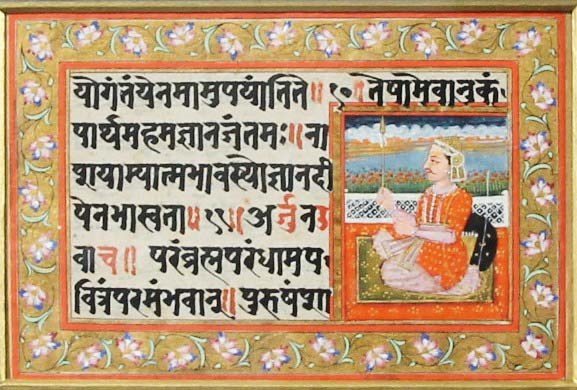 योगंतंयेनमामुपयांतिते॥१०॥तेषामेवानुकं
पार्थमहमज्ञानजंतमः॥ना
शयाम्यात्मभावस्थोज्ञानदी
पेनभास्वता॥११॥अर्जुनउ
वाच॥परंब्रह्मपरंधामप
वित्रंपरमंभवान्॥पुरुषंशा